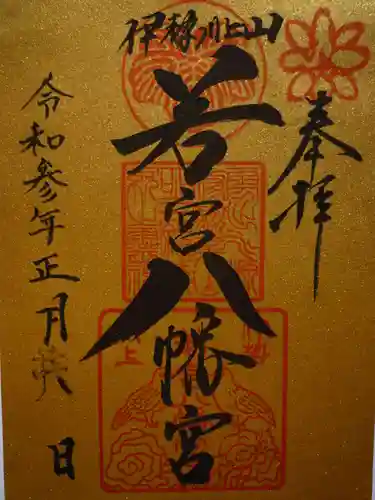 奉拝
伊勢川上山
若宮八幡宮
令和参年正月 日